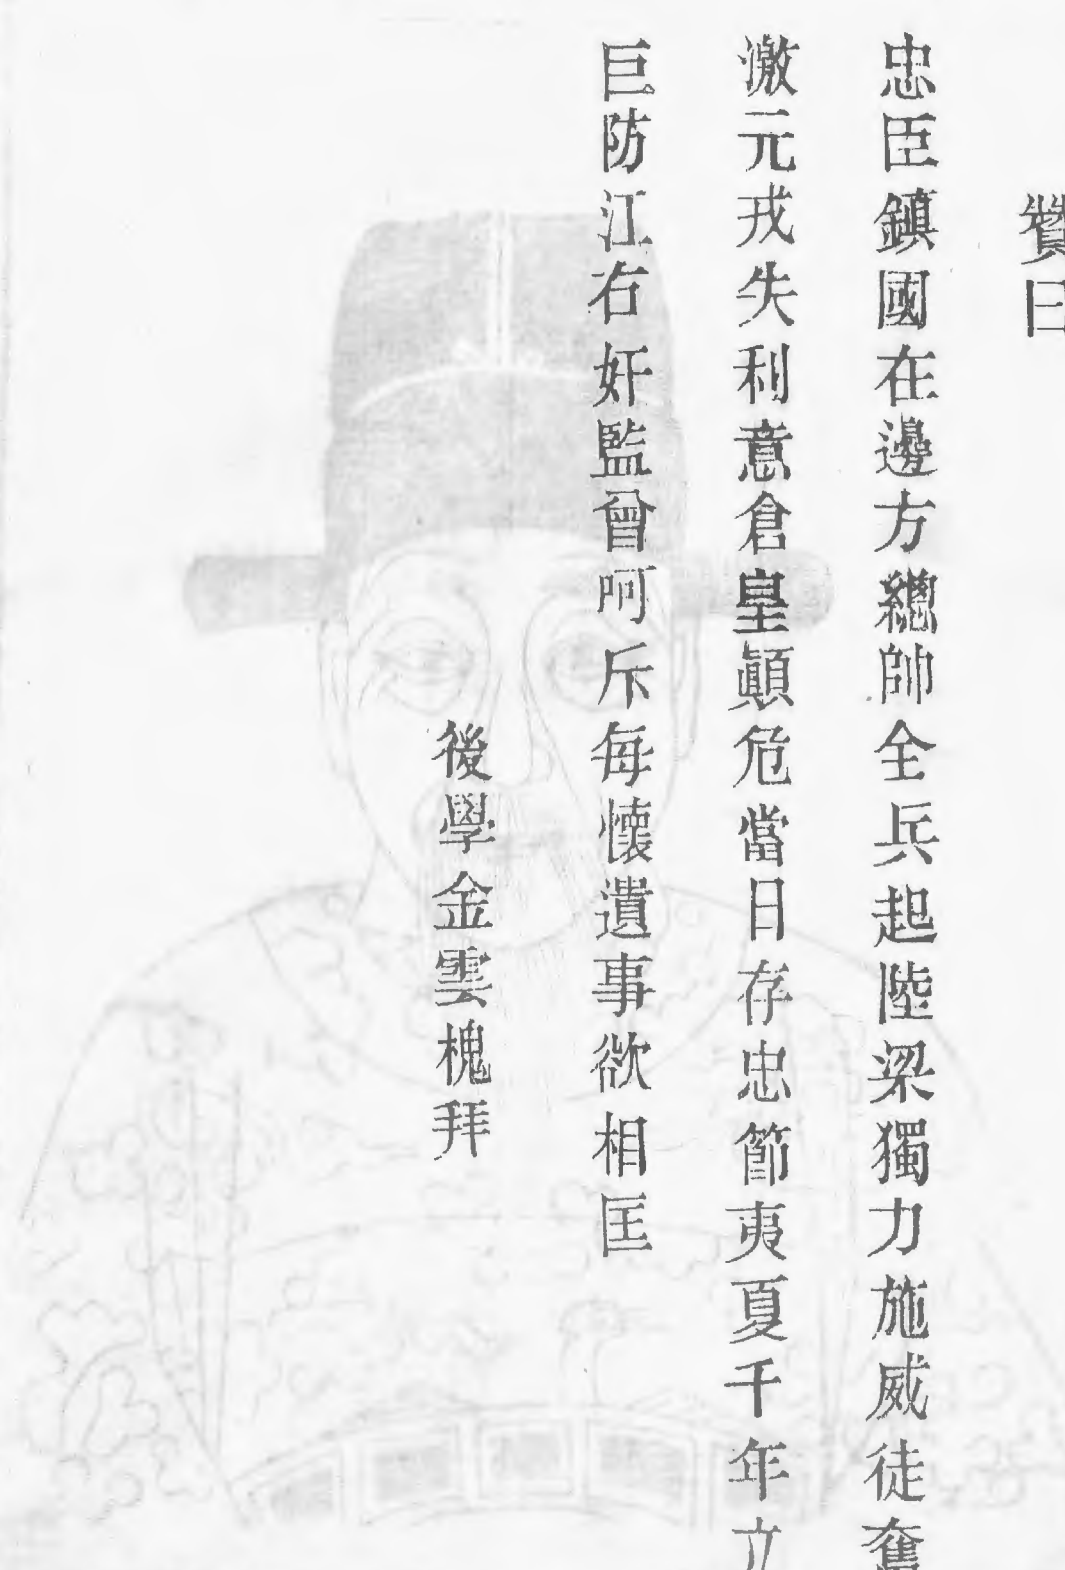 贊曰
忠臣鎮國在邊方總帥全兵起陸梁獨力施威徒奮
激元戎失利意倉皇顛危當日存忠節夷夏千年立
巨防江右奸監曾呵斥每懷遺事欲相匡
後學金雲槐拜